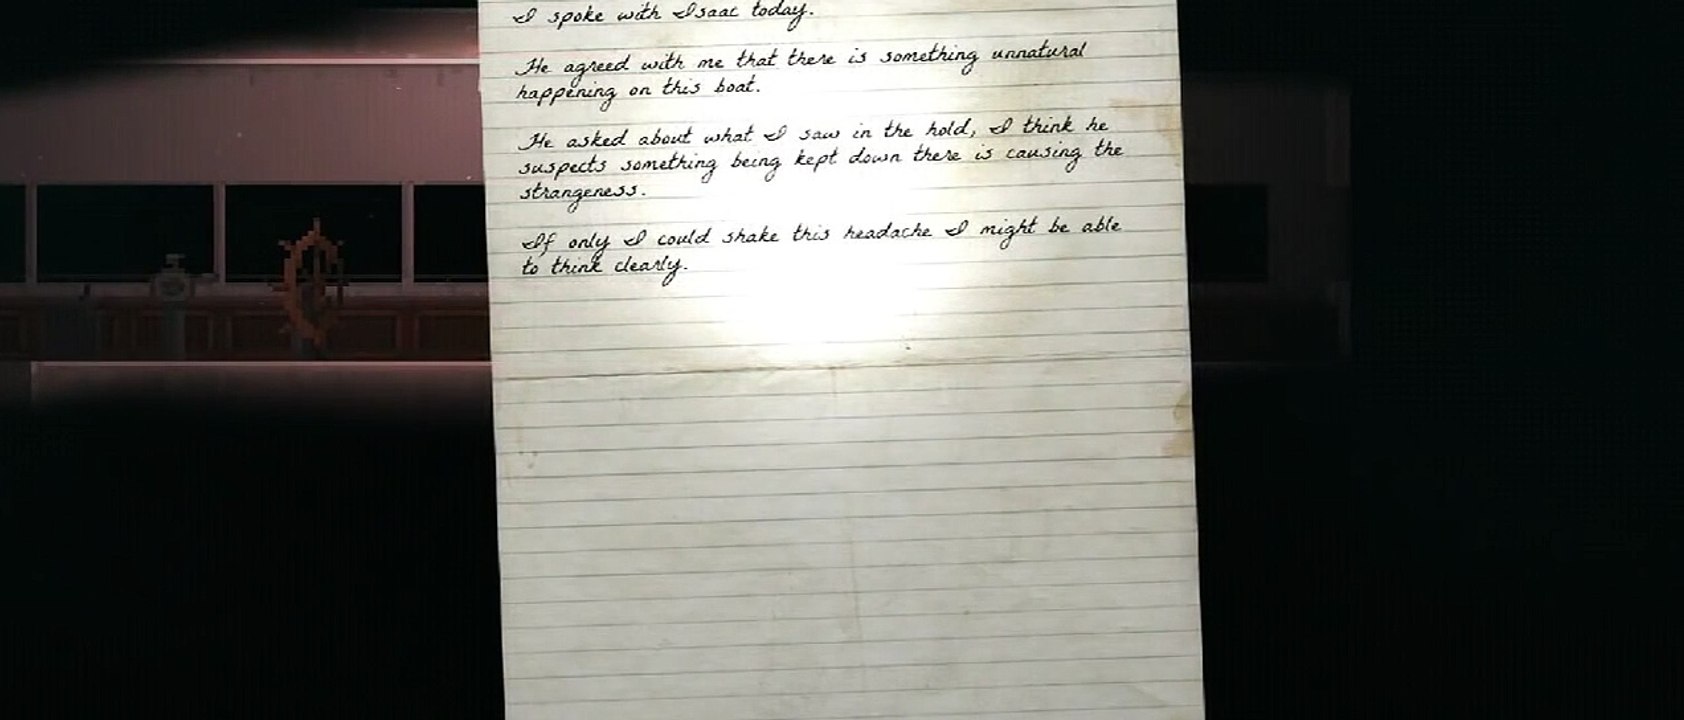 I spoke with Isaac today.
He agreed with me that there is something unnatural
happening on this boat.
He asked about what I saw in the hold, I think he
suspects something being kept down there is causing the
strangeness.
If only I could shake this headache I might be able
to think clearly.